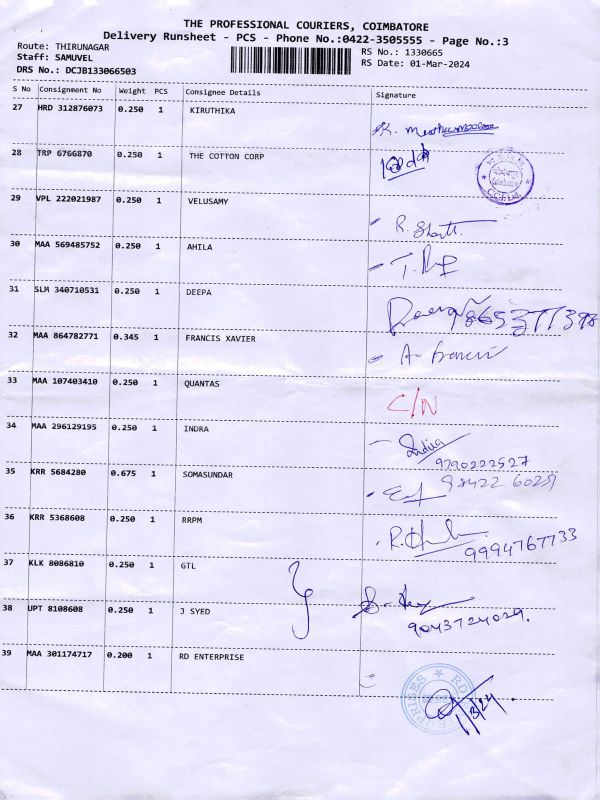 THE PROFESSIONAL COURIERS, COIMBATORE
Delivery Runsheet - PCS - Phone No.:0422-3505555 - Page No.:3
Route: THIRUNAGAR
Staff: SAMUVEL
DRS No.: DCJB133066503
RS No.: 1330665
RS Date: 01-Mar-2024
S No Consignment No Weight PCS Consignee Details Signature
27 HRD 312876073 0.250 1 KIRUTHIKA
28 TRP 6766870 0.250 1 THE COTTON CORP
29 VPL 222021987 0.250 1 VELUSAMY
30 MAA 569485752 0.250 1 AHILA
31 SLM 340710531 0.250 1 DEEPA
32 MAA 864782771 0.345 1 FRANCIS XAVIER A. Francis
33 MAA 107403410 0.250 1 QUANTAS C/N
34 MAA 296129195 0.250 1 INDRA
35 KRR 5684280 0.675 1 SOMASUNDAR
36 KRR 5368608 0.250 1 RRPM
9994767733
37 KLK 8086810 0.250 1 GTL
38 UPT 8108608 0.250 1 J SYED
9043724029.
39 MAA 301174717 0.200 1 RD ENTERPRISE
1/3/24